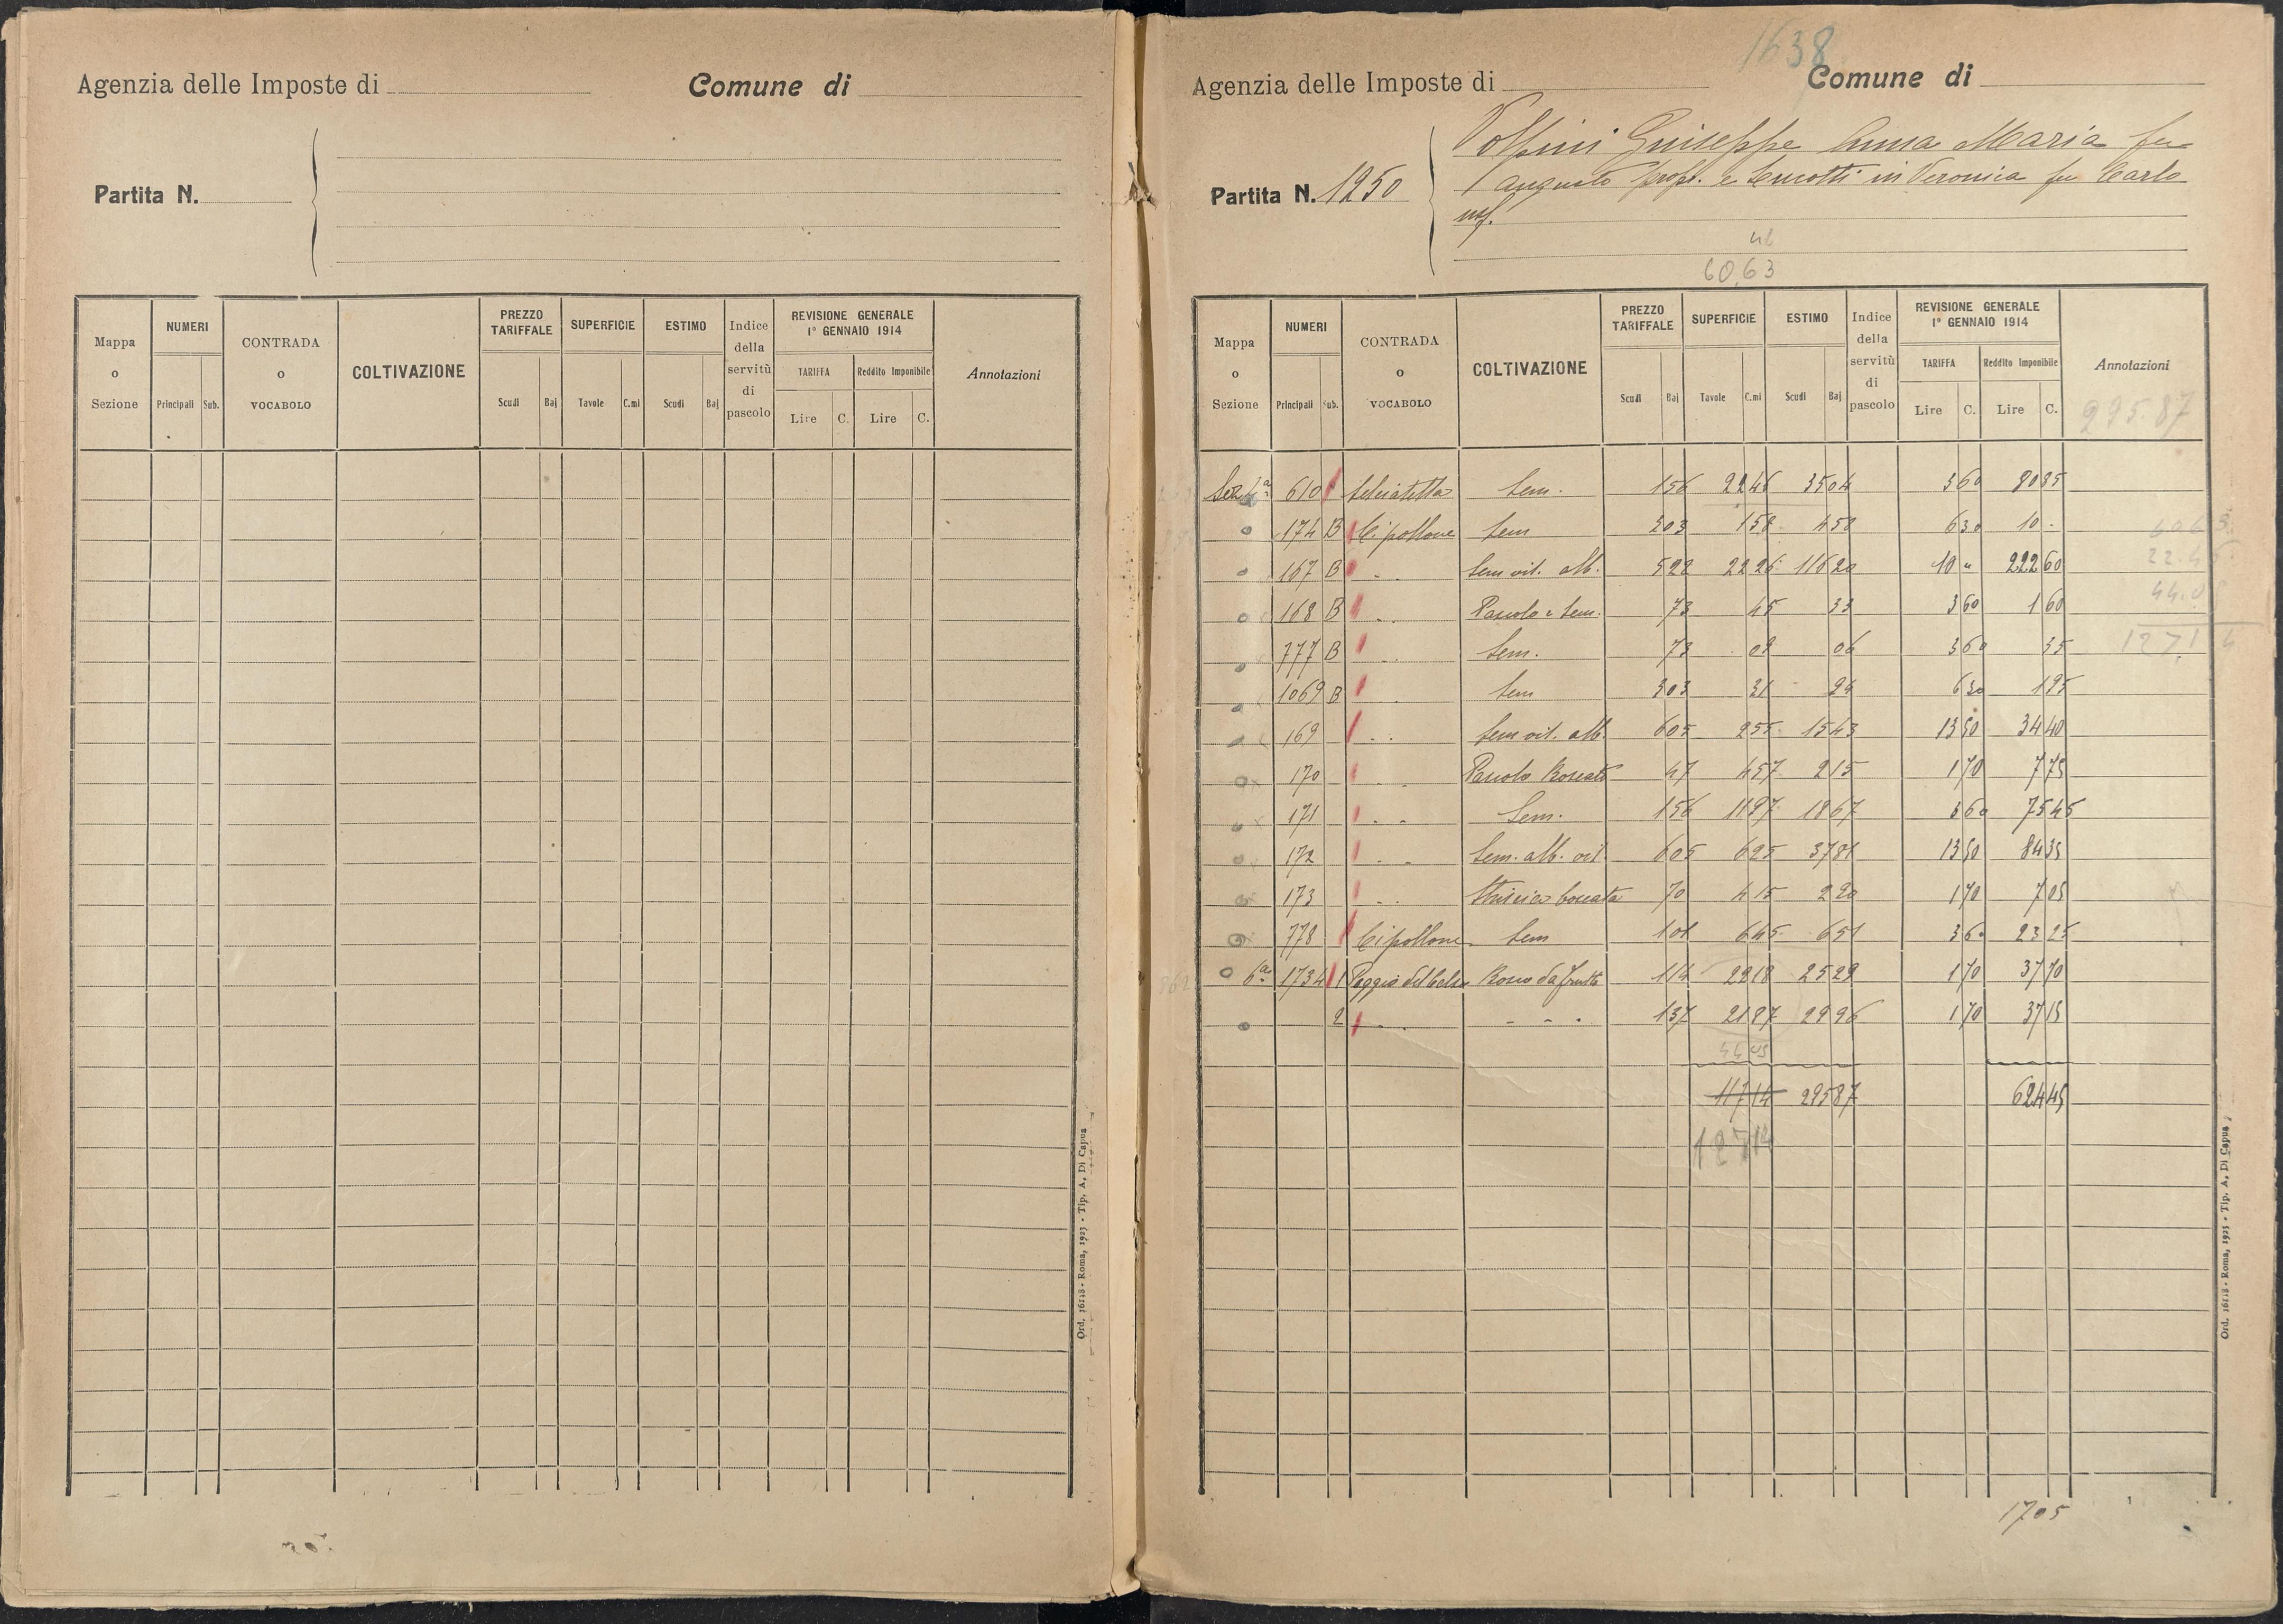 Agenzia delle Imposte di
Comune di
Partita N.
Mappa o Sezione
NUMERI
Principali
Sub.
CONTRADA o VOCABOLO
COLTIVAZIONE
PREZZO TARIFFALE
Scudi
Baj
SUPERFICIE
Tavole
C.mi
ESTIMO
Scudi
Baj
Indice della servitù di pascolo
REVISIONE GENERALE
1° GENNAIO 1914
TARIFFA
Reddito Imponibile
Lire
C.
Lire
C.
Annotazioni
Ord. 16118 - Roma, 1925 - Tip. A. Di Capua
1638
Agenzia delle Imposte di
Comune di
Partita N. 1250
Volpini Giuseppe Anna Maria fu
Augusto propr. e in Veronica fu Carlo
usf.
60.63
Mappa o Sezione
NUMERI
Principali
Sub.
CONTRADA o VOCABOLO
COLTIVAZIONE
PREZZO TARIFFALE
Scudi
Baj
SUPERFICIE
Tavole
C.mi
ESTIMO
Scudi
Baj
Indice della servitù di pascolo
REVISIONE GENERALE
1° GENNAIO 1914
TARIFFA
Reddito Imponibile
Lire
C.
Lire
C.
Annotazioni
295.87
Sez 1a 610 Selciatella Sem. 1 56 22 46 35 04 3 60 80 85
174 B Cipollone Sem 3 03 1 58 4 58 6 30 10 -
167 B " " Sem vit. alb. 5 22 22 26 116 20 10 " 222 60
168 B " " Pascolo e Sem. 73 45 33 3 60 1 60
777 B " " Sem. 73 09 06 3 60 35
1069 B " " Sem 3 03 31 94 6 30 1 95
169 " " Sem vit. alb. 6 05 2 55 15 43 13 50 34 40
170 " " Pascolo Boscato 47 4 57 2 15 1 70 7 75
171 " " Sem. 1 56 11 97 18 67 3 60 75 45
172 " " Sem. alb. vit 6 05 6 25 37 81 13 50 84 35
173 " " boscata 70 4 15 2 20 1 70 7 05
778 Cipollone Sem 1 01 6 45 6 51 3 60 23 25
6a 1734 1 Bosco da frutto 1 14 22 18 25 29 1 70 37 70
2 " " " " " 1 37 21 87 29 96 1 70 37 15
44 05
117 14 295 87 624 45
127 14
1705
Ord. 16118 - Roma, 1925 - Tip. A. Di Capua